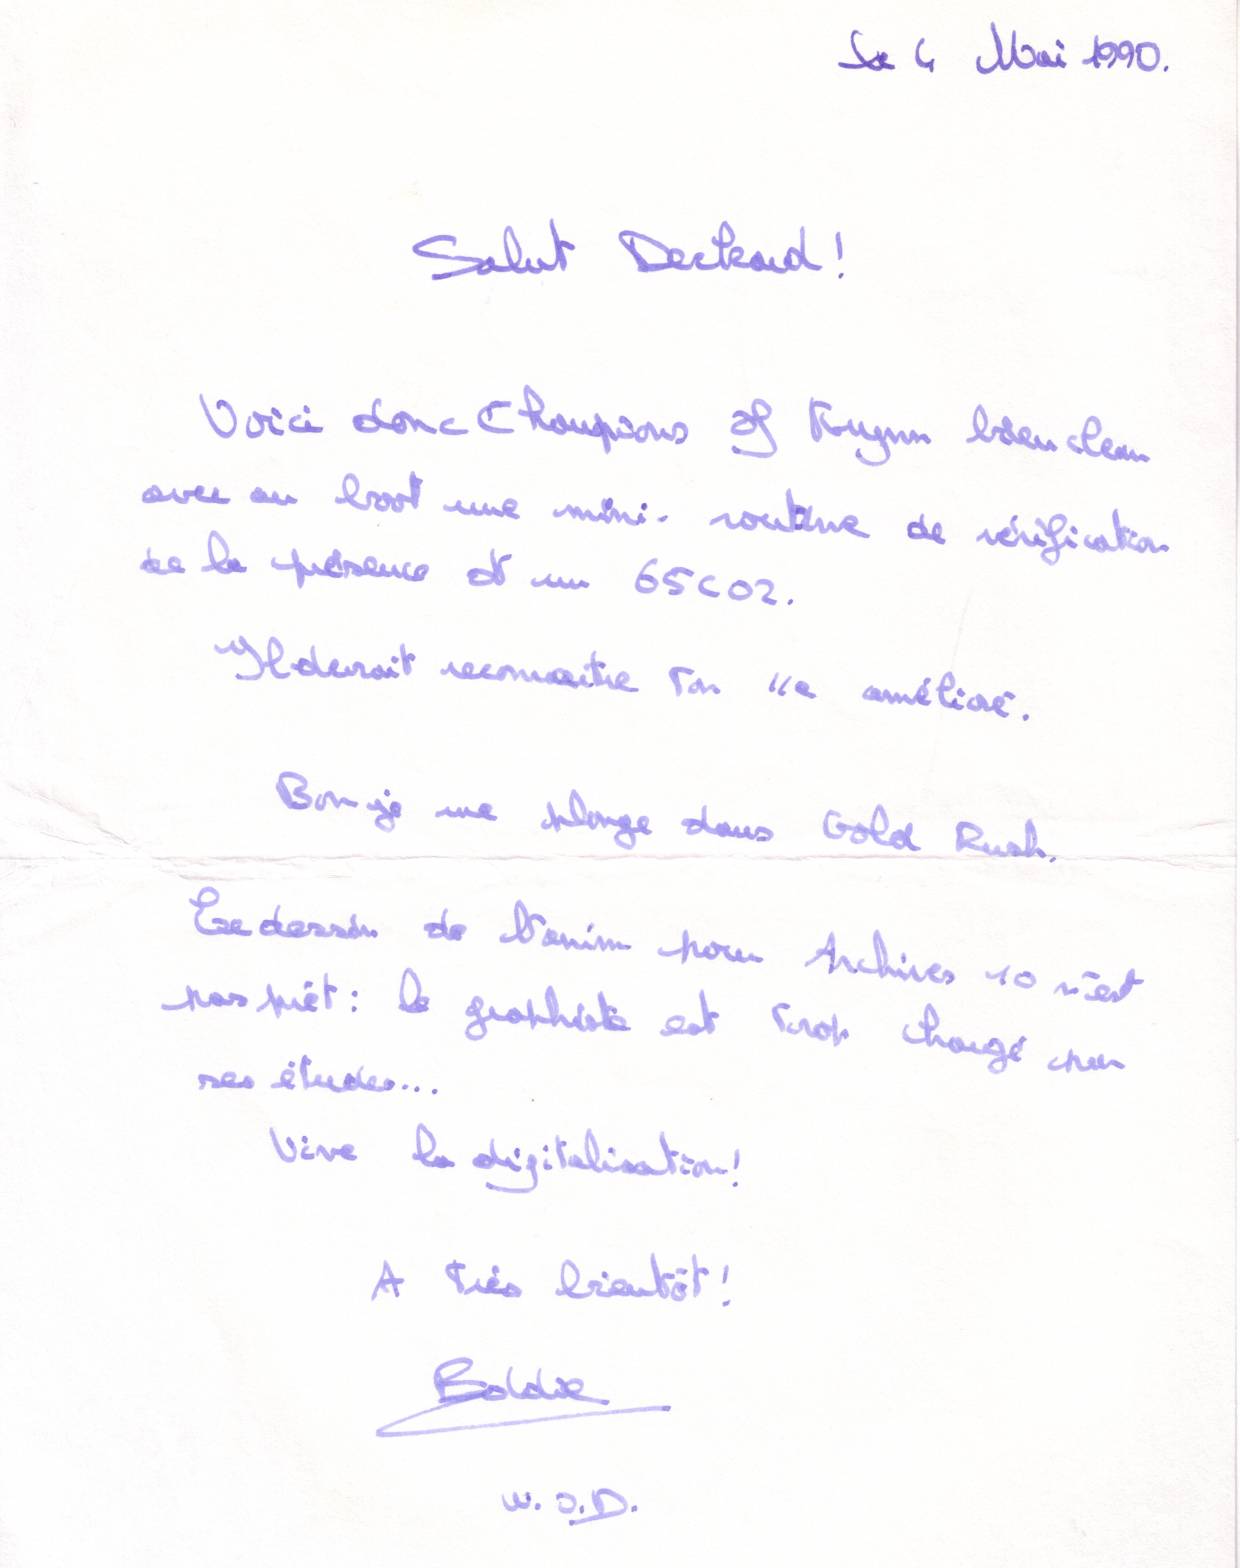 Le 4 Mai 1990.
Salut Deckard!
Voici donc Champions of Krynn bien clean
avec au boot une mini-routine de vérification
de la présence d'un 65C02.
Il devrait reconnaitre ton //e amélioré.
Bon je me plonge dans Gold Rush.
Le dessin de l'anim pour Archives 10 n'est
pas prêt: le graphiste est trop chargé par
ses études...
Vive la digitalisation!
A très bientôt!
Baldie
W.O.D.